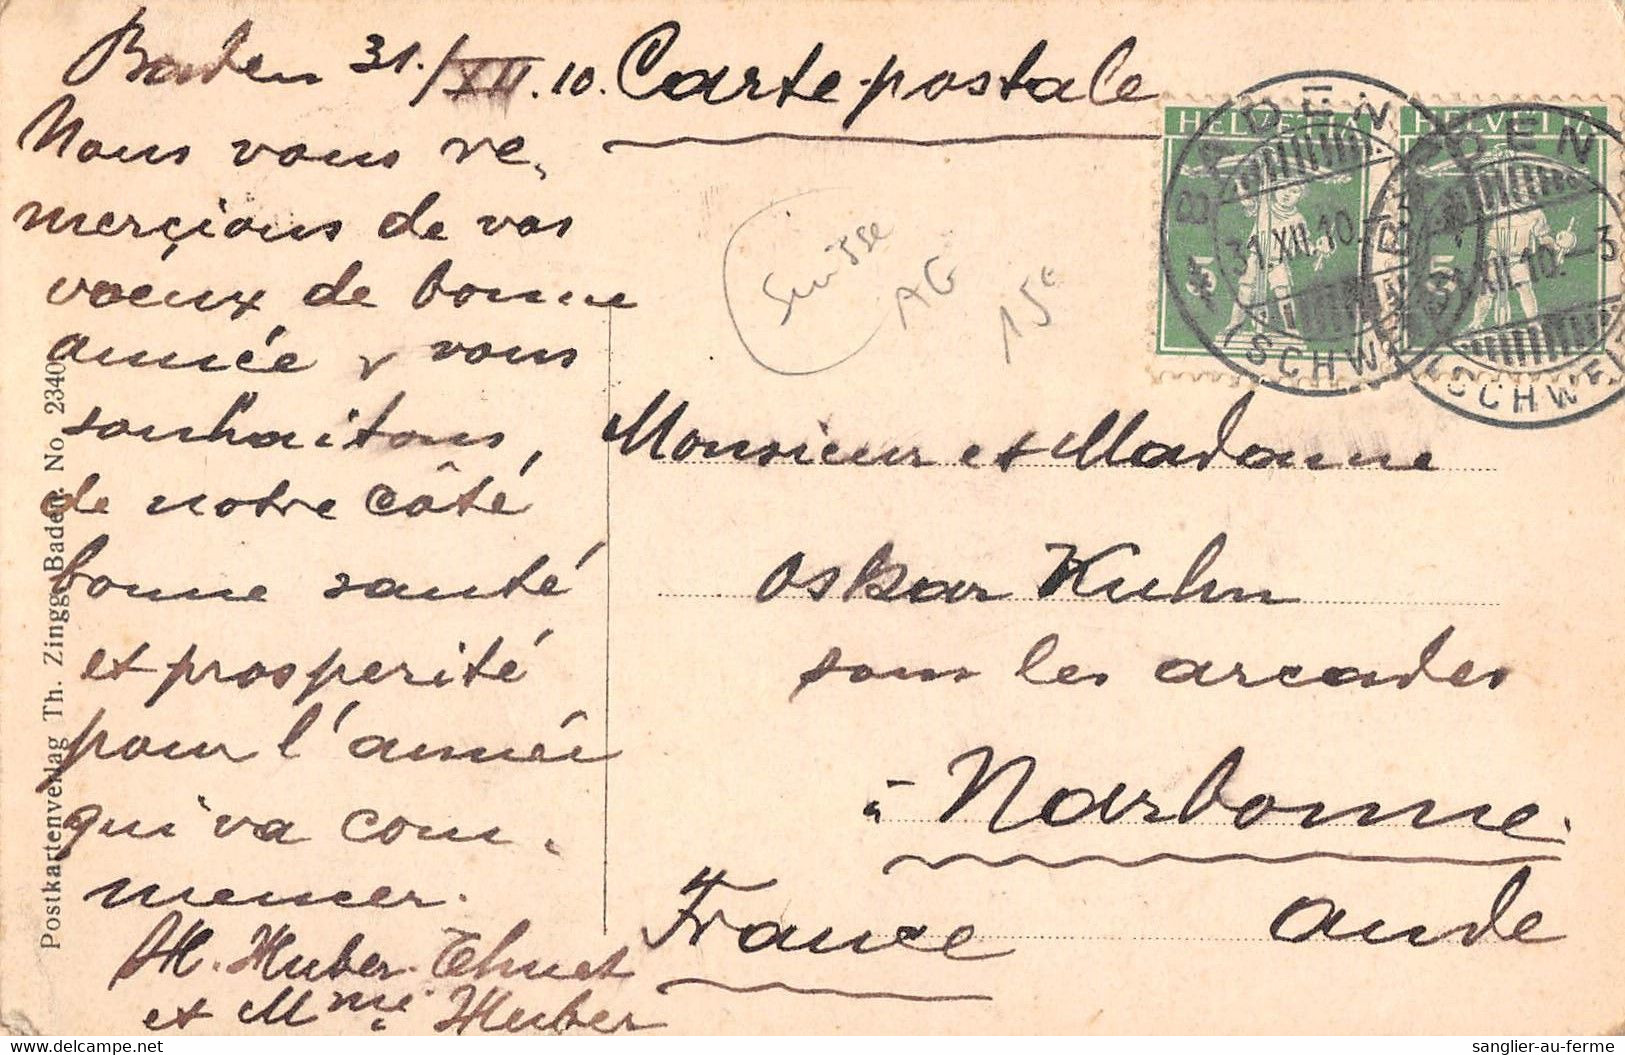 Baden 31./XII.10.
Carte postale
Nous vous re,
merçions de vos
voeux de bonne
année & vous
souhaitons,
de notre côté
bonne santé
et prosperité
pour l'année
qui va com,
mencer.
H. Huber
et Mme Huber
Monsieur et Madame
Oskar Kuhn
sous les arcades
à Narbonne.
France
Aude
Suisse
AG
15€
HELVETIA
5
HELVETIA
5
BADEN
31.XII.10.
(SCHWEIZ)
BADEN
31.XII.10.-3
(SCHWEIZ)
Postkartenverlag Th. Zingg, Baden. No 2340
sanglier-au-ferme